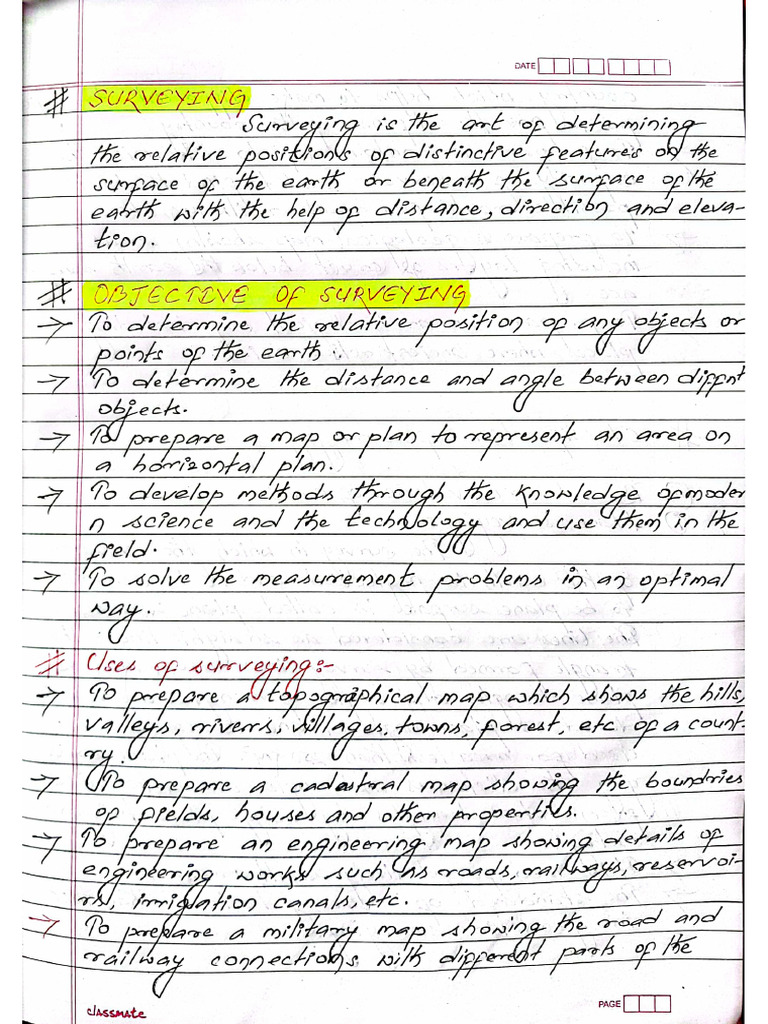 DATE
# SURVEYING
Surveying is the art of determining
the relative positions of distinctive features on the
surface of the earth or beneath the surface of the
earth with the help of distance, direction and eleva-
tion.
# OBJECTIVE OF SURVEYING
→ To determine the relative position of any objects or
points of the earth.
→ To determine the distance and angle between diffnt
objects.
→ To prepare a map or plan to represent an area on
a horizontal plan.
→ To develop methods through the knowledge of moder
n science and the technology and use them in the
field.
→ To solve the measurement problems in an optimal
way.
# Uses of surveying:-
→ To prepare a topographical map which shows the hills,
valleys, rivers, villages, towns, forest, etc of a count-
ry.
→ To prepare a cadastral map showing the boundries
of fields, houses and other properties.
→ To prepare an engineering map showing details of
engineering works such as roads, railways, reservoi-
rs, irrigation canals, etc.
→ To prepare a military map showing the road and
railway connections with different parts of the
classmate
PAGE